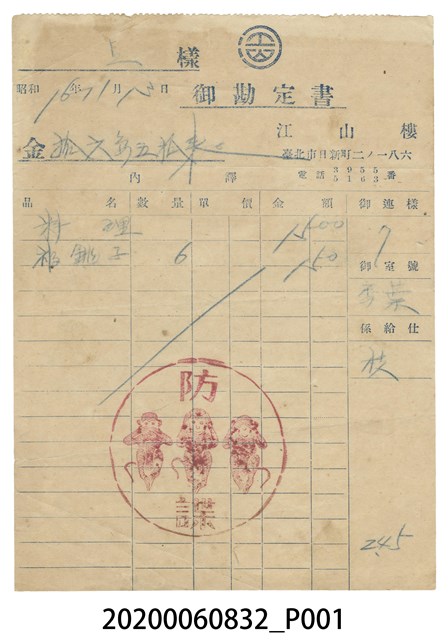 上 樣
昭和 16年11月13日
御勘定書
江山樓
臺北市日新町二ノ一八六
電話 3955 5163 番
金拾六円五拾錢
內譯
品名 數量 單價 金額 御連樣
料理 1500 7
福銚子 6 150
御室號
秀英
係給仕
防諜
245
20200060832_P001